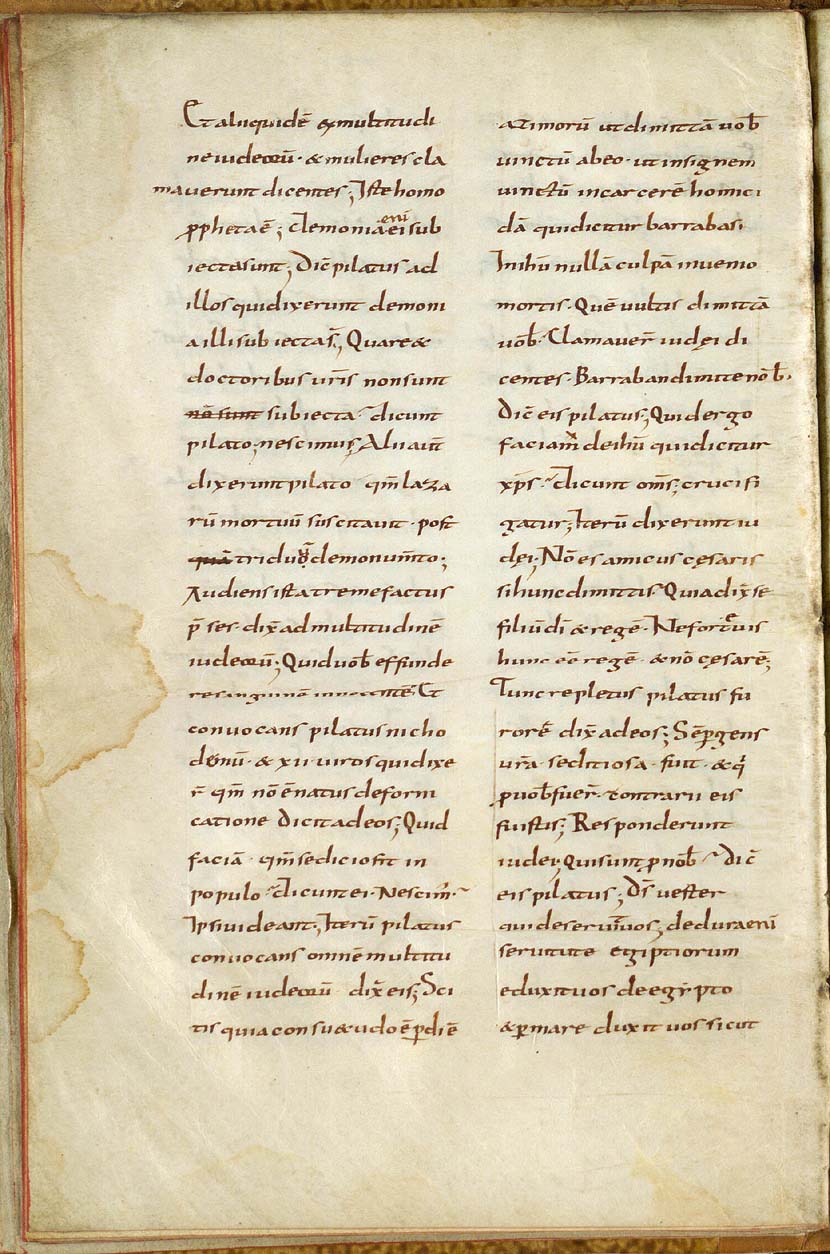 Et alii quidē & multitudi
ne iudeoꝝū · & mulieres cla
maverunt dicentes; Iste homo
ꝓpheta ē; Demonia enī ei sub
iecta sunt; Dic̄ pilatus ad
illos qui dixerunt demoni
a illi subiecta s̄; Quare &
doctoribus ur̄is non sunt
nō sunt subiecta · dicunt
pilato; nescimus; Alii aut̄
dixerunt pilato qm̄ laza
rū mortuū suscitavit · post
quā triduū de monum̄to;
Audiens ista tremefactus
p̄ses · dix̄ ad multitudinē
iudeoꝝū; Quid uob̄ effunde
re sanguinem innocentē · Et
convocans pilatus nicho
demū · & xii viros qui dixe
r̄ qm̄ nō ē natus de forni
catione Dicit ad eos; Quid
faciā · qm̄ sedicio fit in
populo · dicunt ei · Nescim̄ ·
Ipsi uideant; Iterū pilatus
convocans omnem multitu
dinē iudeoꝝū dix̄ eis; Sci
tis quia consu&udo ē ꝑ diē
azimorū ut dimittā uob̄
uinctū abeo · ut insignem
uinctū in carcerē homici
dā qui dicitur barrabas ·
In ihū nullā culpā invenio
mortis · Quē uultis dimittā
uob̄ · Clamaver̄ iudęi di
centes · Barraban dimitte nob̄ ·
Dic̄ eis pilatus; Quid ergo
faciam de ihū qui dicitur
xp̄s · dicunt om̄s; crucifi
gatur; Iterū dixerunt iu
dęi; Nō es amicus cęsaris
si hunc dimittis Quia dix̄ se
filiū dī & regē · Ne forte uis
hunc eē regē · & nō cęsarē;
Tunc repletus pilatus fu
rorē dix̄ ad eos; Sēꝑ gens
ur̄a seditiosa fuit · & q̄
ꝓ uob̄ fuer̄ · contrarii eis
fuistis; Responderunt
iudęi; Qui sunt ꝓ nob̄ · Dic̄
eis pilatus; Ds̄ uester
qui de seruit̄ uos; de dura enī
seruitute egiptiorum
eduxit uos de egypto
& ꝑ mare duxit uos sicut